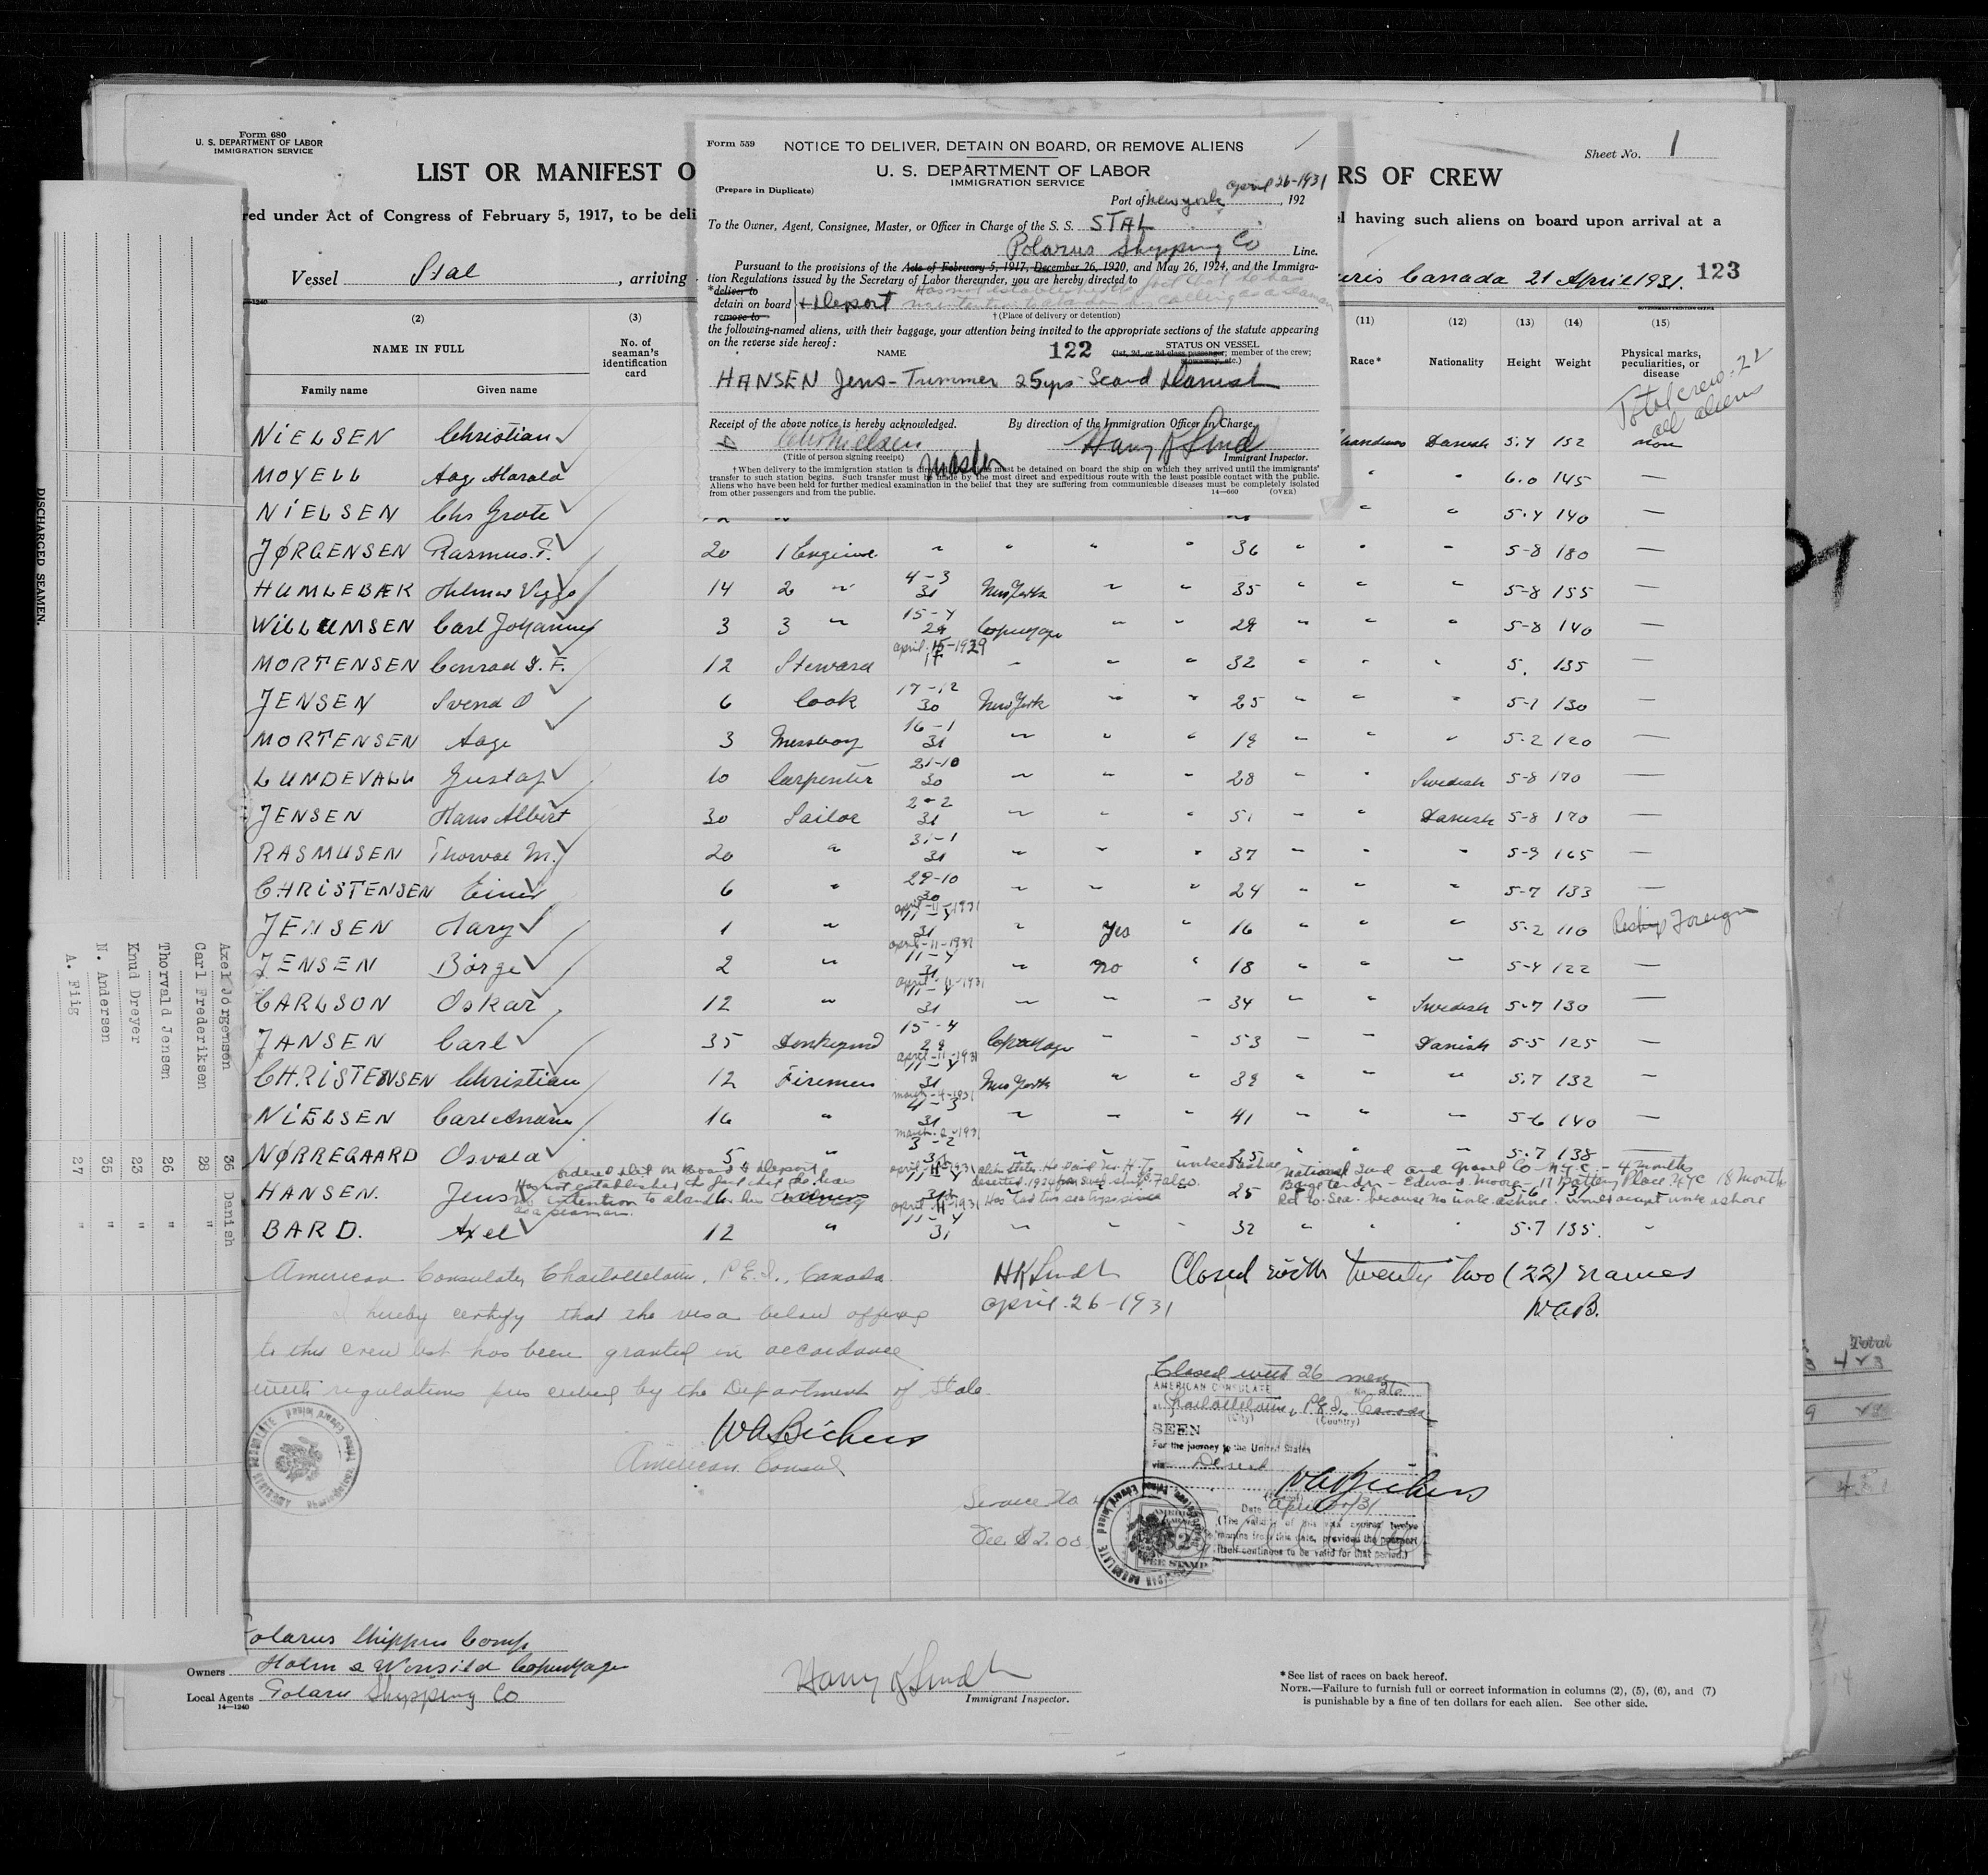 Form 680
U. S. DEPARTMENT OF LABOR
IMMIGRATION SERVICE
LIST OR MANIFEST O
RS OF CREW
Sheet No. 1
red under Act of Congress of February 5, 1917, to be deli
l having such aliens on board upon arrival at a
Vessel Stal , arriving
Canada 21 April 1931.
123
Form 559
NOTICE TO DELIVER, DETAIN ON BOARD, OR REMOVE ALIENS
U. S. DEPARTMENT OF LABOR
IMMIGRATION SERVICE
(Prepare in Duplicate)
Port of New York april 26-1931, 192
To the Owner, Agent, Consignee, Master, or Officer in Charge of the S. S. STAL
Polarus Shipping Co Line.
Pursuant to the provisions of the Acts of February 5, 1917, December 26, 1920, and May 26, 1924, and the Immigra-
tion Regulations issued by the Secretary of Labor thereunder, you are hereby directed to
Has not established the fact that he has
*deliver to
detain on board + Deport no intention to abandon his calling as a seaman
remove to
†(Place of delivery or detention)
the following-named aliens, with their baggage, your attention being invited to the appropriate sections of the statute appearing
on the reverse side hereof:
NAME
122
STATUS ON VESSEL
(1st, 2d, or 3d class passenger; member of the crew;
stowaway, etc.)
HANSEN Jens - Trimmer 25yrs - Scand Danish
Receipt of the above notice is hereby acknowledged.
By direction of the Immigration Officer in Charge,
Chr Nielsen
Harry K Lind
(Title of person signing receipt)
Master
Immigrant Inspector.
†When delivery to the immigration station is directed, aliens must be detained on board the ship on which they arrived until the immigrants'
transfer to such station begins. Such transfer must be made by the most direct and expeditious route with the least possible contact with the public.
Aliens who have been held for further medical examination in the belief that they are suffering from communicable diseases must be completely isolated
from other passengers and from the public.
14—660 (OVER)
1240
(2) (3) (11) (12) (13) (14) (15)
NAME IN FULL
No. of seaman's identification card
Race* Nationality Height Weight
Physical marks, peculiarities, or disease
Family name Given name
Total crew - 22
all aliens
NIELSEN Christian Danish 5.4 152 non
MOYELL Aage Harald " 6.0 145 —
NIELSEN Chr Grote " " 5.4 140 —
JØRGENSEN Rasmus. F. 20 1 Engine " " " " 36 " " " 5-8 180 —
HUMLEBÆK Helmer Viggo 14 2 " 4-3 31 New York " " 35 " " " 5-8 155 —
WILLUMSEN Carl Johannes 3 3 " 15-4 29 Copenhagen " " 29 " " " 5-8 140 —
april 15-1929
MORTENSEN Conrad I. F. 12 Steward " " " 32 " " " 5. 135 —
JENSEN Svend O 6 Cook 17-12 30 New York " " 25 " " " 5-1 130 —
MORTENSEN Aage 3 Messboy 16-1 31 " " " 19 " " " 5-2 120 —
LUNDEVALL Gustaf 10 Carpenter 21-10 30 " " " 28 " " Swedish 5-8 170 —
JENSEN Hans Albert 30 Sailor 2-2 31 " " " 51 " " Danish 5-8 170 —
RASMUSEN Thorval M. 20 " 31-1 31 " " " 37 " " " 5-9 165 —
CHRISTENSEN Einer 6 " 29-10 30 " " " 24 " " " 5-7 133 —
april-11-1931
JENSEN Harry 1 " 31 " Yes " 16 " " " 5-2 110 Reship Foreign
april-11-1931
JENSEN Börge 2 " 11-4 31 " no " 18 " " " 5-4 122 —
april-11-1931
CARLSON Oskar 12 " 31 " " " 34 " " Swedish 5-7 130 —
JANSEN Carl 35 Donkeymd 15-4 29 Copenhagen " " 53 " " Danish 5-5 125 —
april-11-1931
CHRISTENSEN Christian 12 Firemen 31 New York " " 39 " " " 5.7 132 —
march-4-1931
NIELSEN Carl Andrew 16 " 4-3 31 " " " 41 " " " 5-6 140 —
march-2-1931
NØRREGAARD Osvald 5 " 3-2 31 " " " 25 " " " 5.7 138 —
ordered det on board & Deport
Has not established the fact that he has
no intention to abandon his calling
as a seaman.
april 11-1931
alien states. He paid no. H.T.
deserted 1926 from
Has had two sea trips since
worked ashore National Sand and Gravel Co - N.Y.C. - 4 months
Barge tender - Edward Moore - 11 Battery Place NYC 18 month
Ret to Sea - because no work ashore. would accept work ashore
HANSEN. Jens 6 31 25 5-6 137
april 11-1931
BARD. Axel 12 " 11-4 31 " " " 32 " " " 5-7 135. "
American Consulate, Charlottetown, P.E.I., Canada.
I hereby certify that the visa below affixed
to this crew list has been granted in accordance
with regulations prescribed by the Department of State.
W A Bickers
American Consul
HK Lindt
april. 26-1931
Closed with twenty two (22) names
W.A.B.
Closed with 26 men
AMERICAN CONSULATE
No. 26
at Charlottetown, P.E.I. Canada
(City) (Country)
SEEN
For the journey to the United States
via Direct
W A Bickers
Date April 21/31
(The validity of this visa expires twelve
months from this date, provided the passport
itself continues to be valid for that period.)
Service No
Fee $2.00
FEE STAMP
Polarus Shipping Comp.
Owners Holm & Wonsild Copenhagen
Local Agents Polarus Shipping Co
14—1240
Harry K Lindt
Immigrant Inspector.
*See list of races on back hereof.
NOTE.—Failure to furnish full or correct information in columns (2), (5), (6), and (7)
is punishable by a fine of ten dollars for each alien. See other side.
DISCHARGED SEAMEN.
Axel Jörgensen 36 Danish
Carl Frederiksen 28 "
Thorvald Jensen 26 "
Knud Dreyer 23 "
N. Andersen 35 "
A. Fiig 27 "
Total